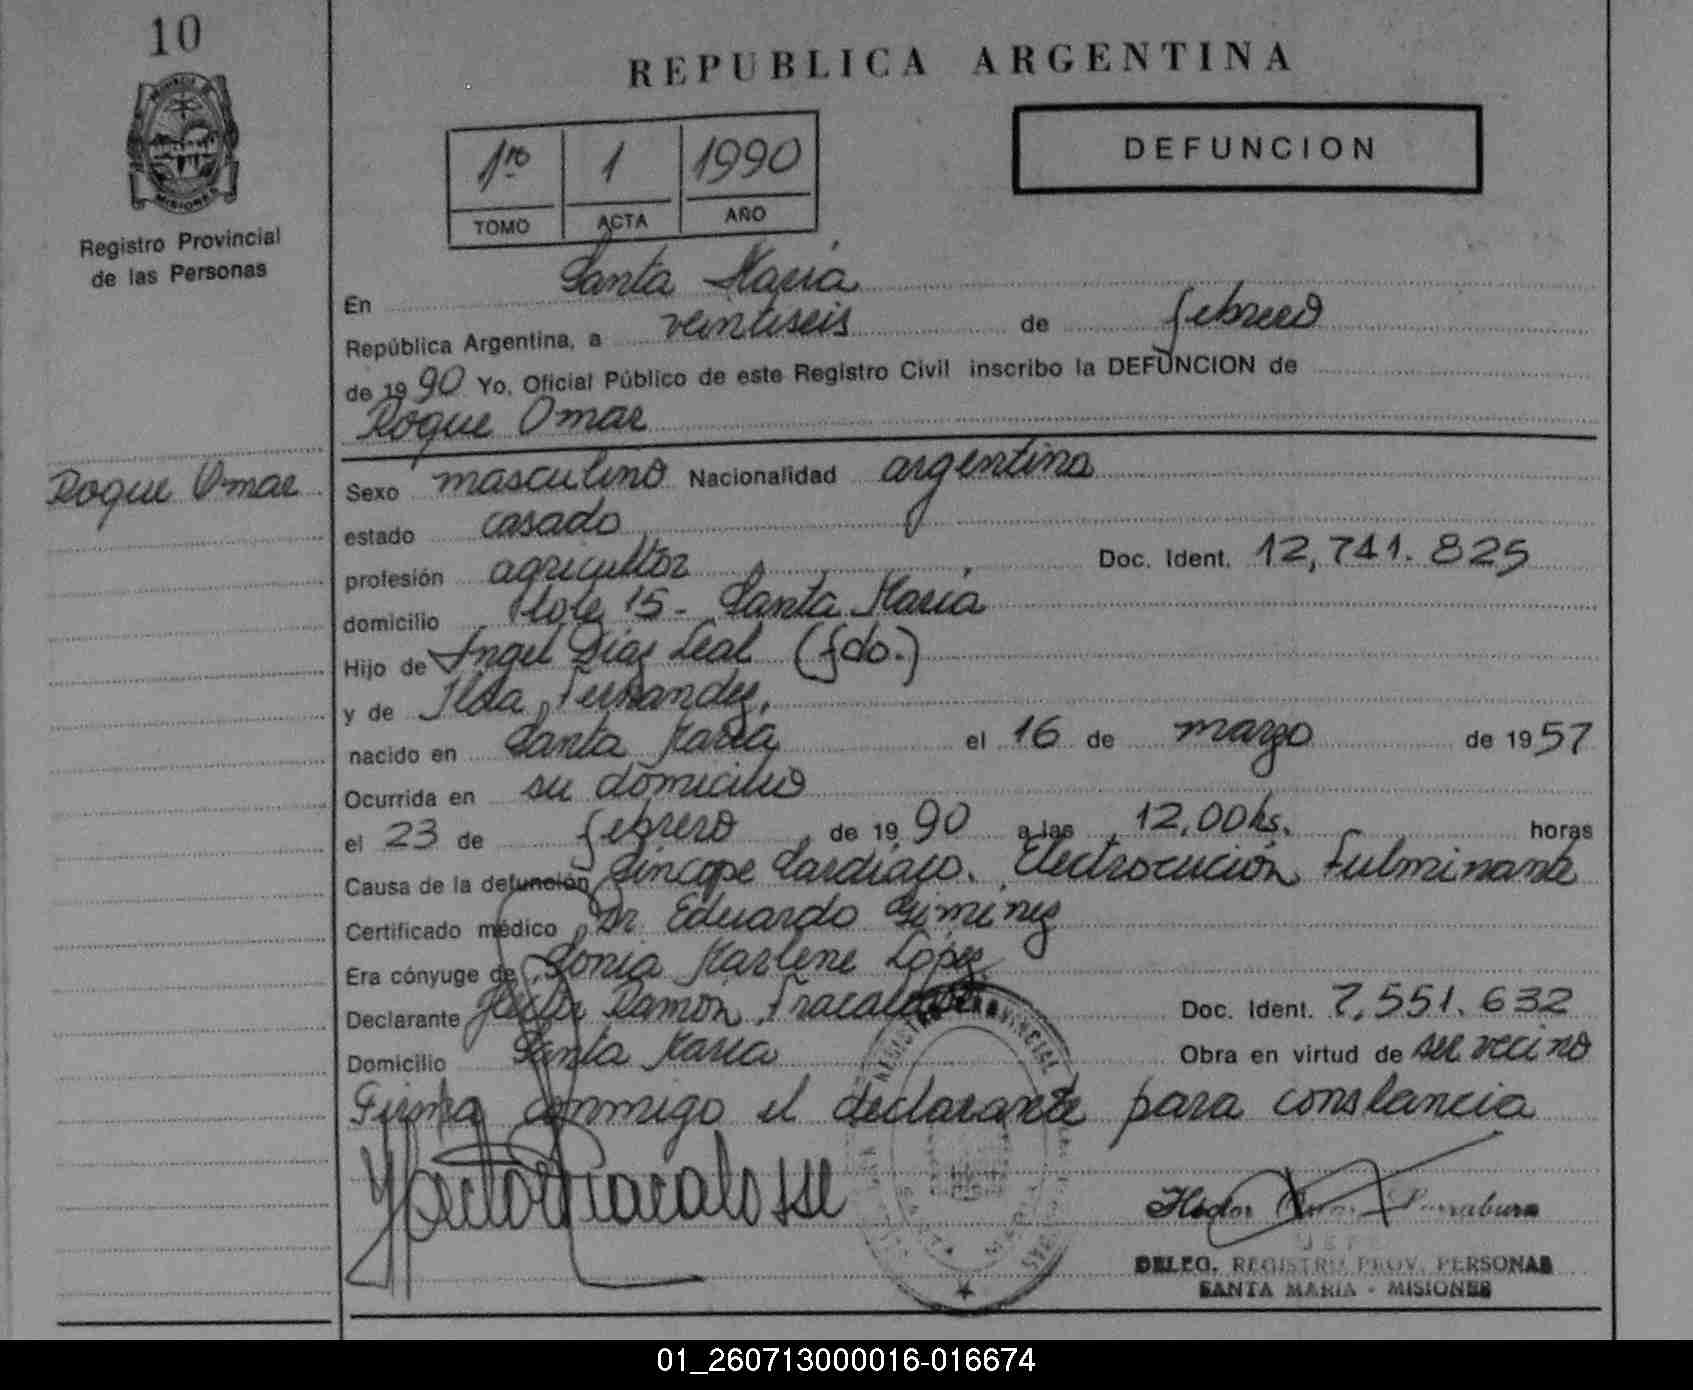 10
MISIONES
Registro Provincial
de las Personas
REPUBLICA ARGENTINA
1ro 1 1990
TOMO ACTA AÑO
DEFUNCION
En Santa María
República Argentina, a veintiseis de febrero
de 1990 Yo, Oficial Público de este Registro Civil inscribo la DEFUNCION de
Roque Omar
Roque Omar
Sexo masculino Nacionalidad argentina
estado casado
profesión agricultor Doc. Ident. 12,741.825
domicilio lote 15 - Santa María
Hijo de Angel Díaz Leal (fdo.)
y de Ilda Fernandez,
nacido en Santa María el 16 de marzo de 1957
Ocurrida en su domicilio
el 23 de febrero de 1990 a las 12,00 hs. horas
Causa de la defunción Síncope Cardíaco. Electrocución Fulminante
Certificado médico Dr Eduardo Giminez
Era cónyuge de Sonia Marlene López
Declarante Héctor Ramón Fracalossi Doc. Ident. 7,551.632
Domicilio Santa María Obra en virtud de ser vecino
Firma conmigo el declarante para constancia
Hector Fracalossi
Hector
DELEG. REGISTRO PROV. PERSONAS
SANTA MARIA - MISIONES
01_260713000016-016674